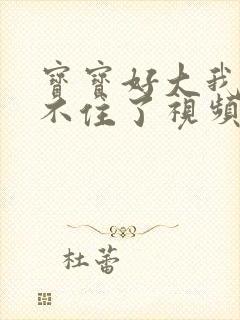 寶寶好大我
不住了視頻
杜蕾